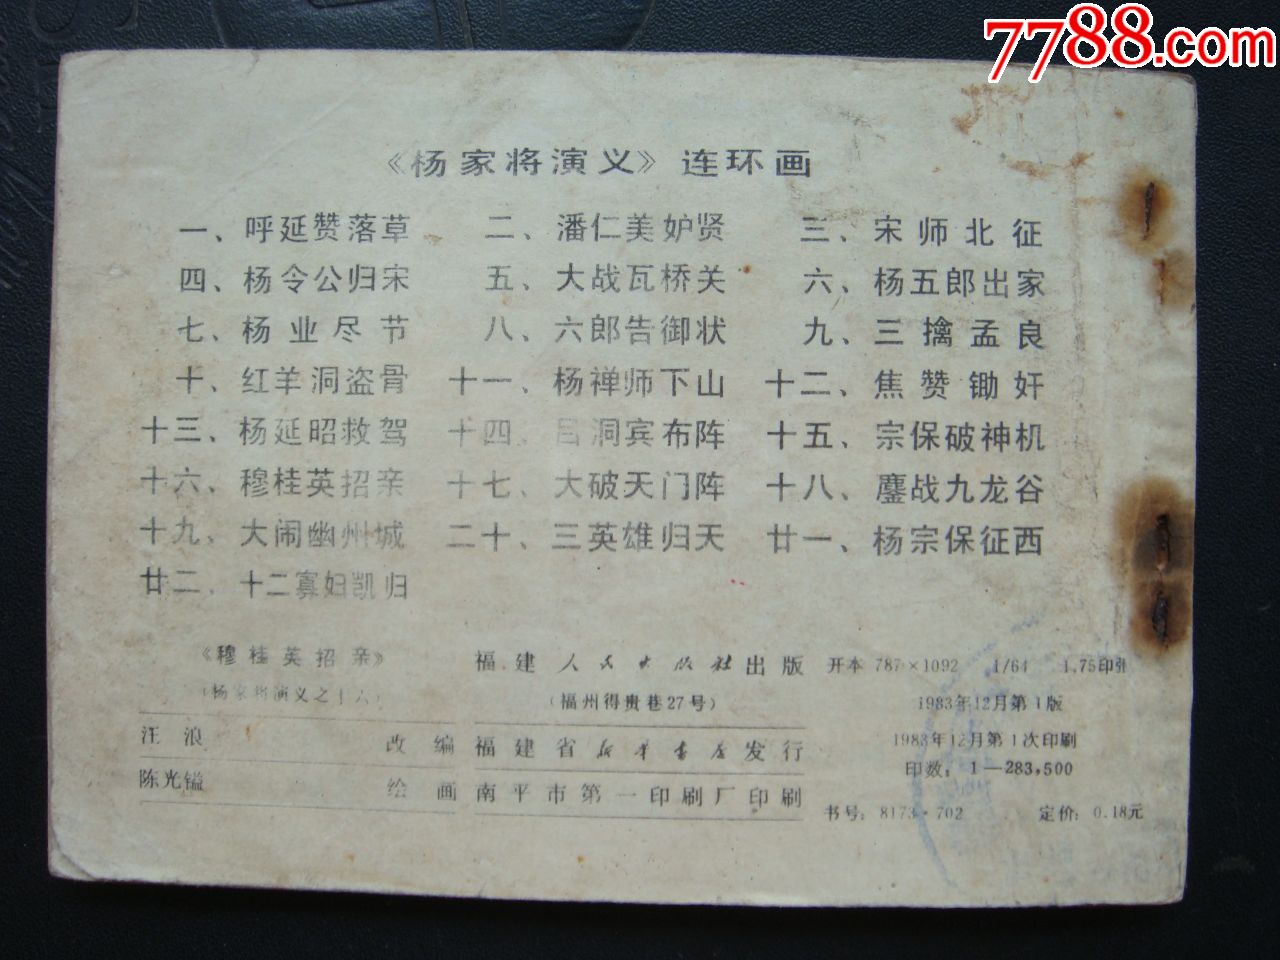 7788.com
《杨家将演义》连环画
一、呼延赞落草 二、潘仁美妒贤 三、宋师北征
四、杨令公归宋 五、大战瓦桥关 六、杨五郎出家
七、杨业尽节 八、六郎告御状 九、三擒孟良
十、红羊洞盗骨 十一、杨禅师下山 十二、焦赞锄奸
十三、杨延昭救驾 十四、吕洞宾布阵 十五、宗保破神机
十六、穆桂英招亲 十七、大破天门阵 十八、鏖战九龙谷
十九、大闹幽州城 二十、三英雄归天 廿一、杨宗保征西
廿二、十二寡妇凯归
《穆桂英招亲》
(杨家将演义之十六)
汪浪 改编
陈光镒 绘画
福建人民出版社出版
(福州得贵巷27号)
福建省新华书店发行
南平市第一印刷厂印刷
开本 787×1092 1/64 1.75印张
1983年12月第1版
1983年12月第1次印刷
印数：1—283,500
书号：8173·702 定价：0.18元